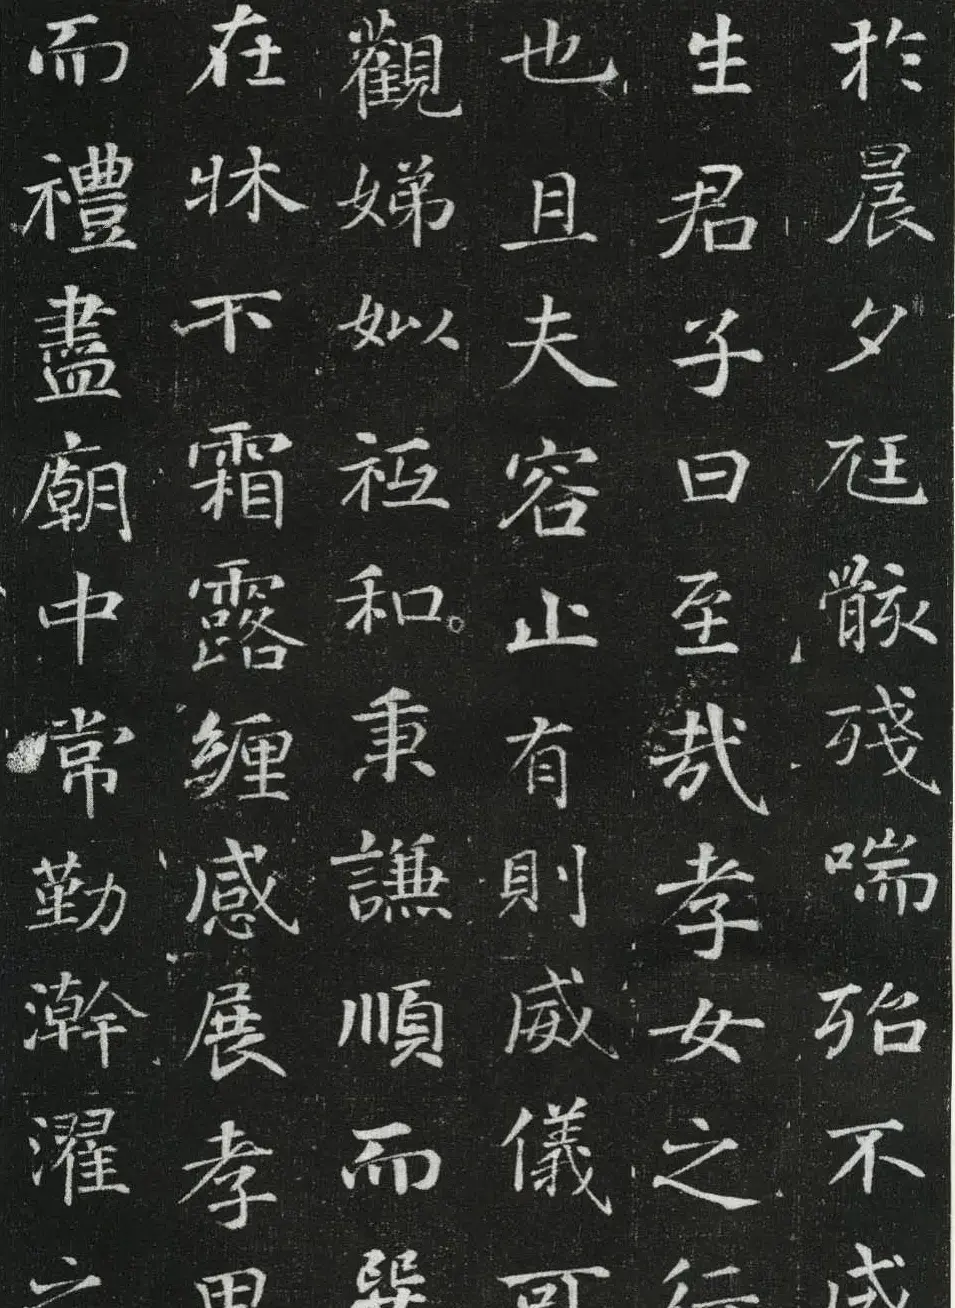 於晨夕尫骸殘喘殆不
生君子曰至哉孝女之行
也且夫容止有則威儀可
觀娣姒祗和秉謙順而巽
在牀下霜露纏感展孝思
而禮盡廟中常勤澣濯之